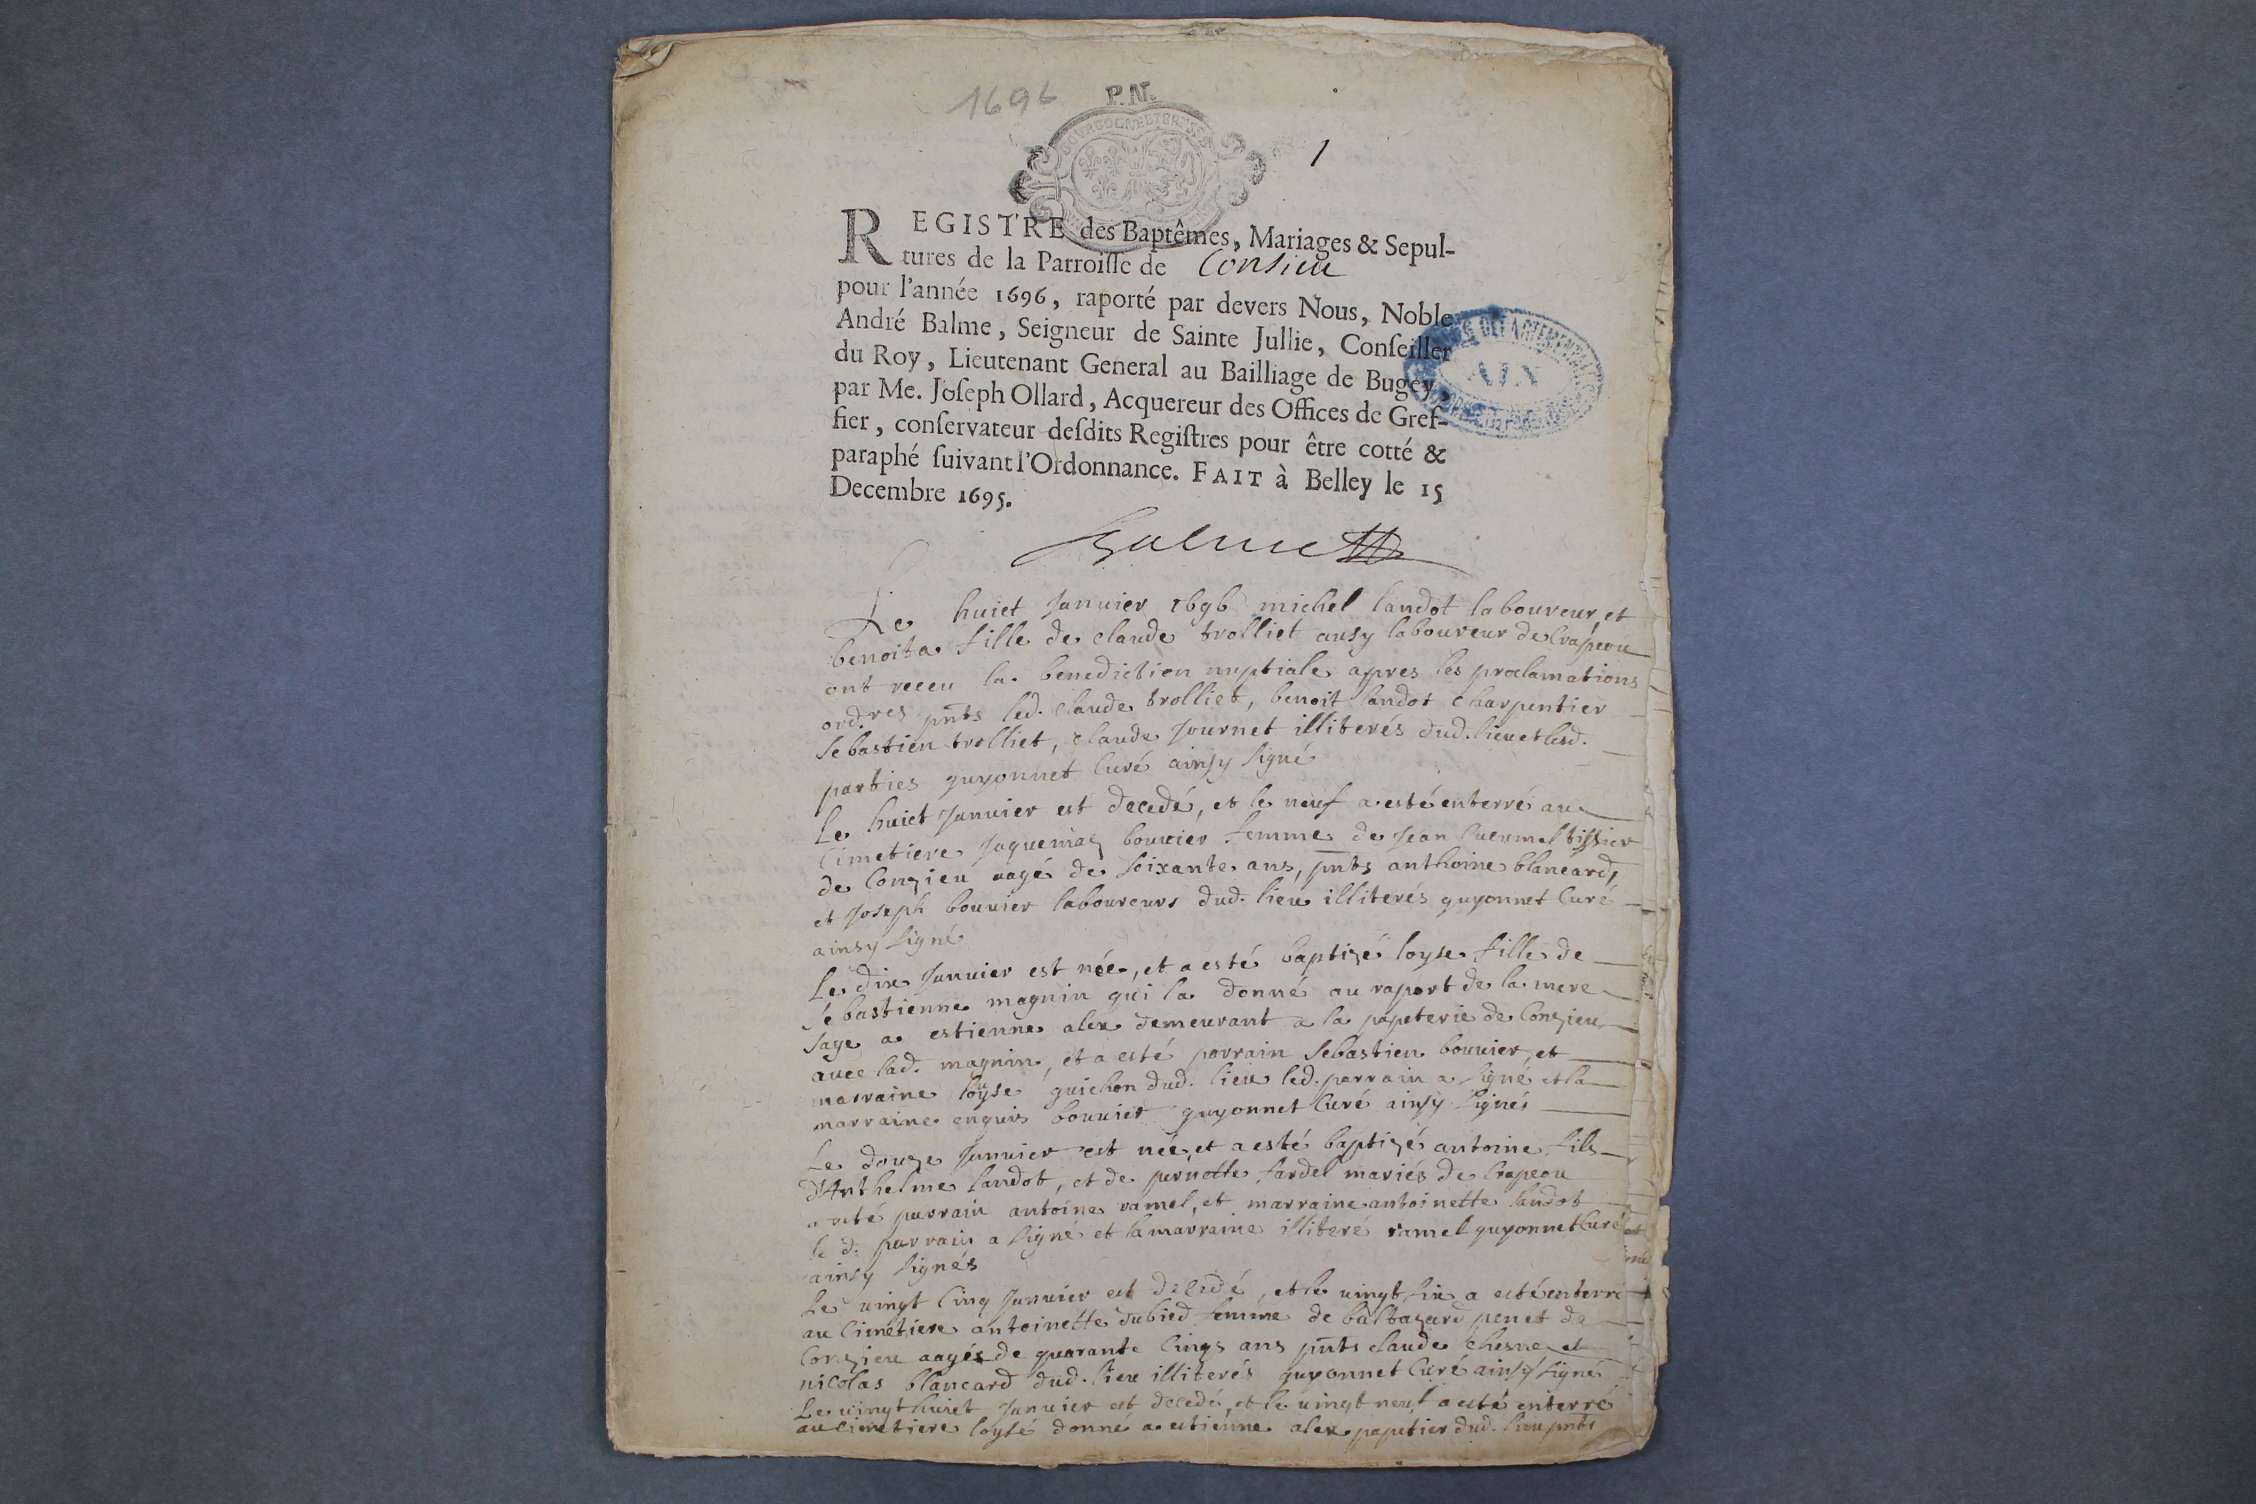 1696
P.N.
BOURGOGNE ET BRESSE
1
REGISTRE des Baptêmes, Mariages & Sepul-
tures de la Parroisse de Consieu
pour l'année 1696, raporté par devers Nous, Noble
André Balme, Seigneur de Sainte Jullie, Conseiller
du Roy, Lieutenant General au Bailliage de Bugey,
par Me. Joseph Ollard, Acquereur des Offices de Gref-
fier, conservateur desdits Registres pour être cotté &
paraphé suivant l'Ordonnance. FAIT à Belley le 15
Decembre 1695.
AIN
Balme
Le huict Janvier 1696 michel landot laboureur, et
benoita fille de claude trolliet ausy laboureur de Crapeou
ont receu la benediction nuptiale apres les proclamations
ord.res pnts led. claude trolliet, benoit landot charpentier
sebastien trolliet, claude Journet illiterés dud. lieu et lesd.
parties guyonnet Curé ainsy signé
Le huict Januier est decedé, et le neuf a esté enterré au
Cimetiere Jaquemaz bouvier femme de Jean tissier
de Conzieu aagé de soixante ans, pnts anthoine blancard,
et Joseph bouuier laboureurs dud. lieu illiterés guyonnet Curé
ainsy signé
Le dix Januier est née, et a esté baptizé loyse fille de
sebastienne magnin qui la donné au raport de la mere
sage a estienne alex demeurant a la papeterie de Conzieu
auec lad. magnin, et a esté parrain sebastien bouuier, et
marraine loyse guichon dud. lieu led. parrain a signé et la
marraine enquis bouuier guyonnet Curé ainsy signés
Le douze Januier est née, et a esté baptizé antoine fils
d'Anthelme landot, et de pernotte fardel mariés de Crapeou
a esté parrain antoine ramel, et marraine antoinette landot
le d. parrain a signé et la marraine illiteré ramel guyonnet Curé
ainsy signés
Le vingt Cinq Januier est decedé, et le vingt six a esté enterré
au Cimetiere antoinette dubied femme de baltazard penet de
Conzieu aagée de quarante Cinqs ans pnts claude chesne et
nicolas blancard dud. lieu illiterés guyonnet Curé ainsy signé
Le vingt huict Januier est decedé, et le vingt neuf a esté enterré
au cimetiere loysé donné a estienne alex papetier dud. lieu pnts